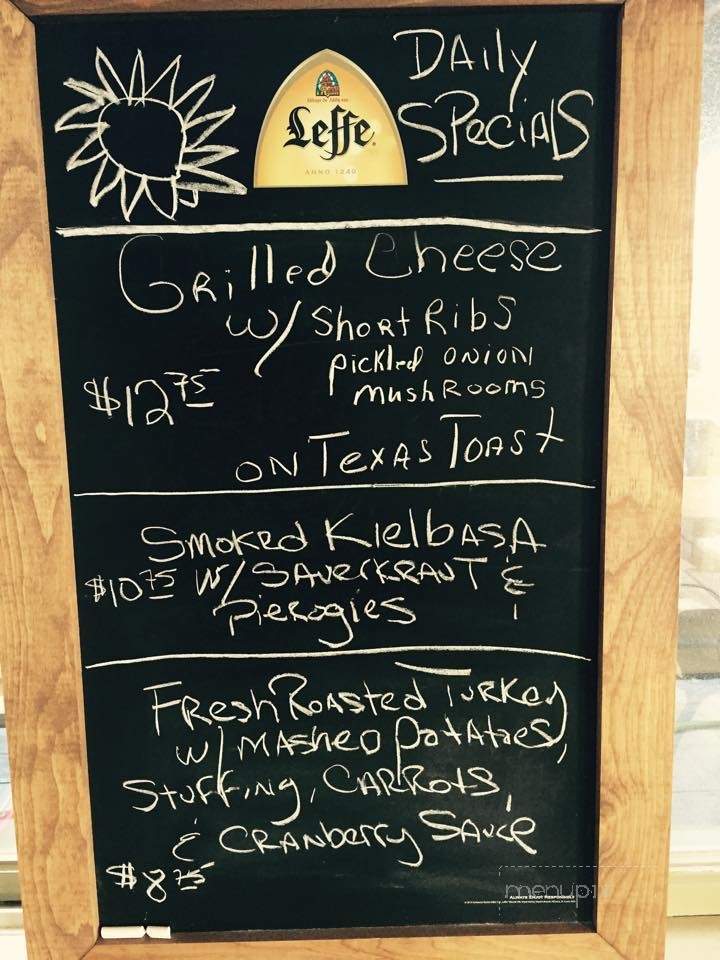 DAily
SPeciAlS
Leffe
ANNO 1240
GRilled Cheese
w/ ShoRt Ribs
pickled ONION
mushRooms
$12 75
ON TexAs ToAst
Smoked KielbASA
$10 75 W/ SAuerkRAuT &
Pierogies
FResh RoAsted TuRkey
w/ mAshed potAtoes,
StuffiNg, CARRots,
& CRANberry SAuce
$8 75
ALWAYS ENJOY RESPONSIBLY
menupix